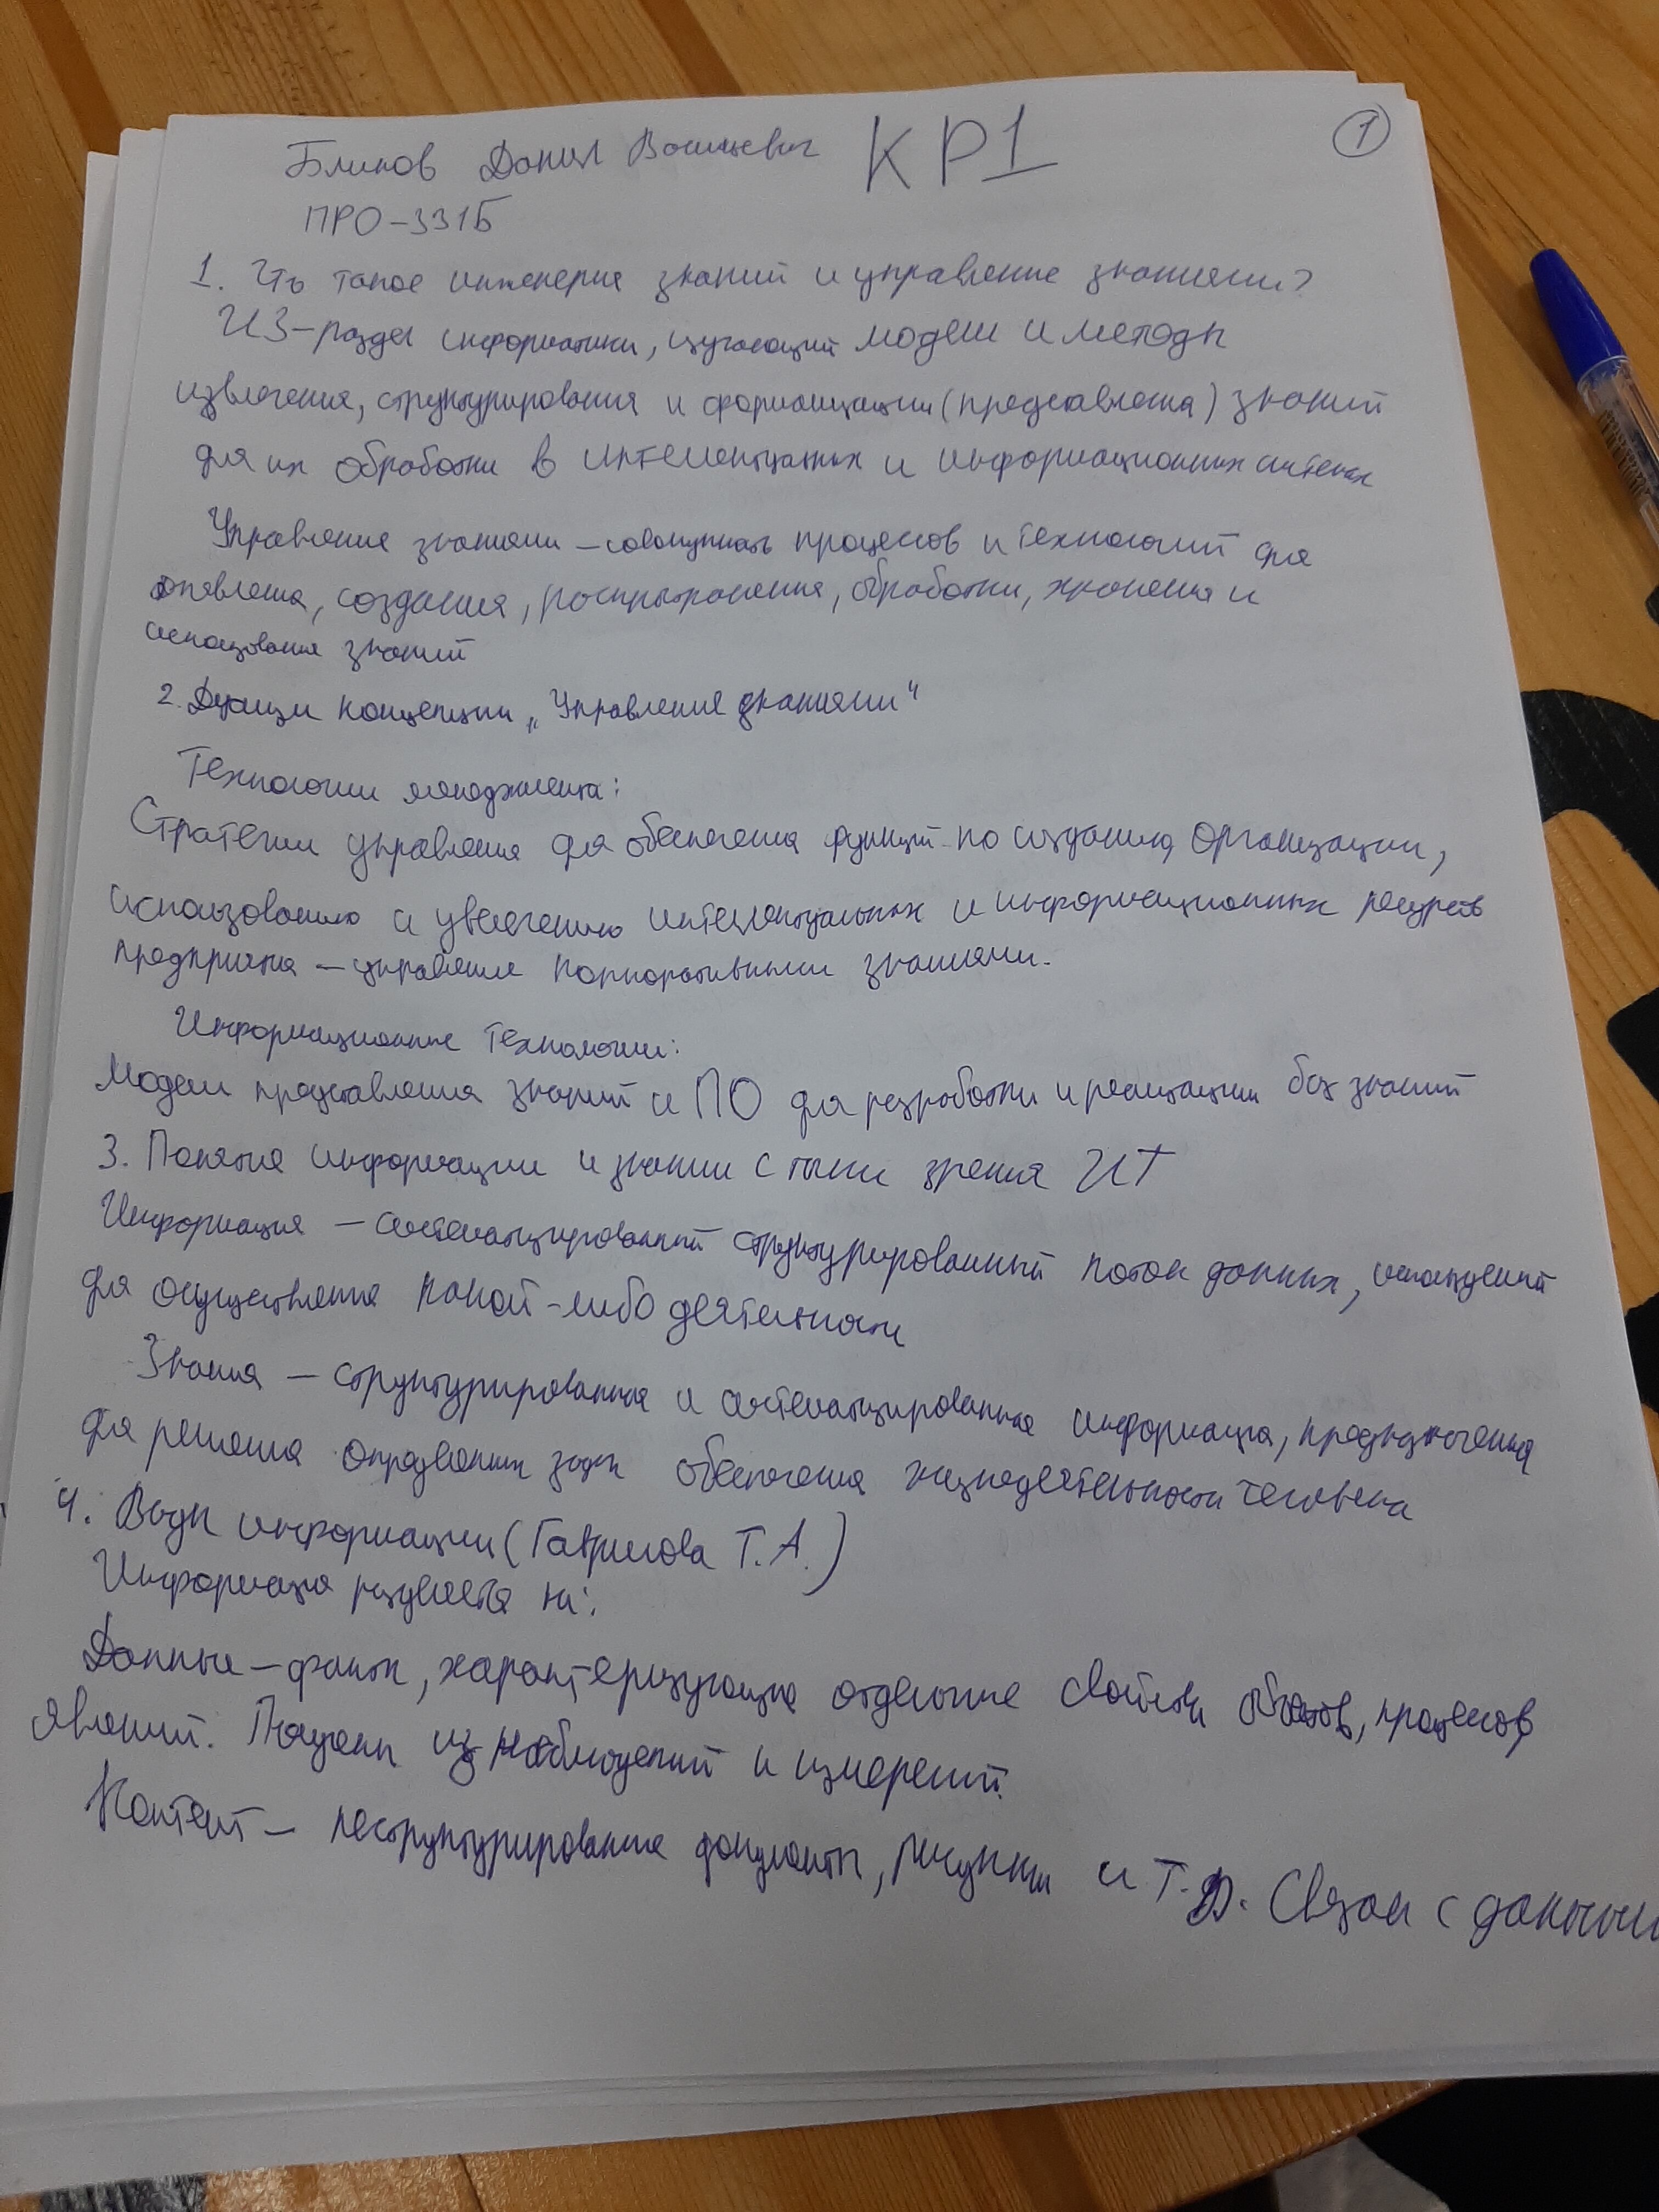 Блинов Данил Васильевич КР1 1
ПРО-331Б
1. Что такое инженерия знаний и управление знаниями?
ИЗ – раздел информатики, изучающий модели и методы
извлечения, структурирования и формализации (представления) знаний
для их обработки в интеллектуальных и информационных системах
Управление знаниями – совокупность процессов и технологий для
выявления, создания, распространения, обработки, хранения и
использования знаний
2. концепции „Управления знаниями“
Технологии менеджмента:
Стратегии управления для обеспечения функций по созданию, организации,
использованию и увеличению интеллектуальных и информационных ресурсов
предприятия – управление корпоративными знаниями.
Информационные технологии:
Модели представления знаний и ПО для разработки и реализации баз знаний
3. Понятия информации и знании с точки зрения ИТ
Информация – систематизированный структурированный поток данных, используемый
для осуществления какой-либо деятельности
Знания – структурированная и систематизированная информация, предназначенная
для решения определенных задач обеспечения жизнедеятельности человека
4. Виды информации (Гаврилова Т.А.)
Информация разделяется на:
Данные – факты, характеризующие отдельные свойства объектов, процессов,
явлений. Получены из наблюдений и измерений.
Контент – неструктурированные документы, рисунки и т.д. Связан с данными